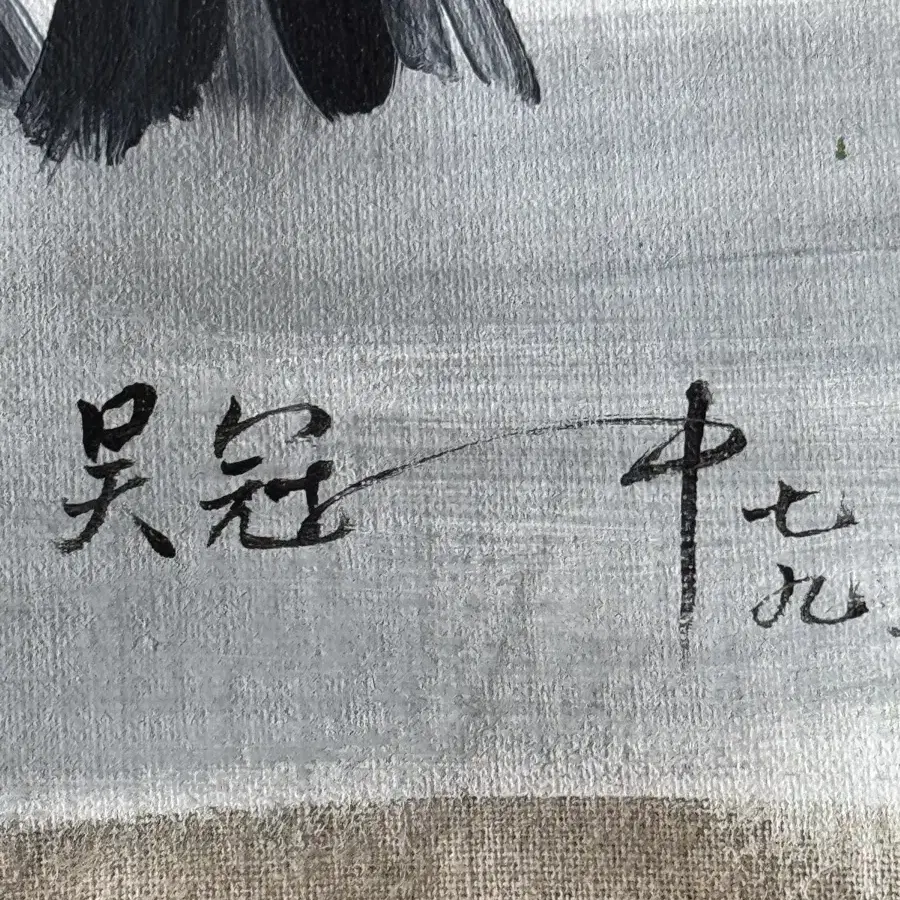 吴冠中
七九